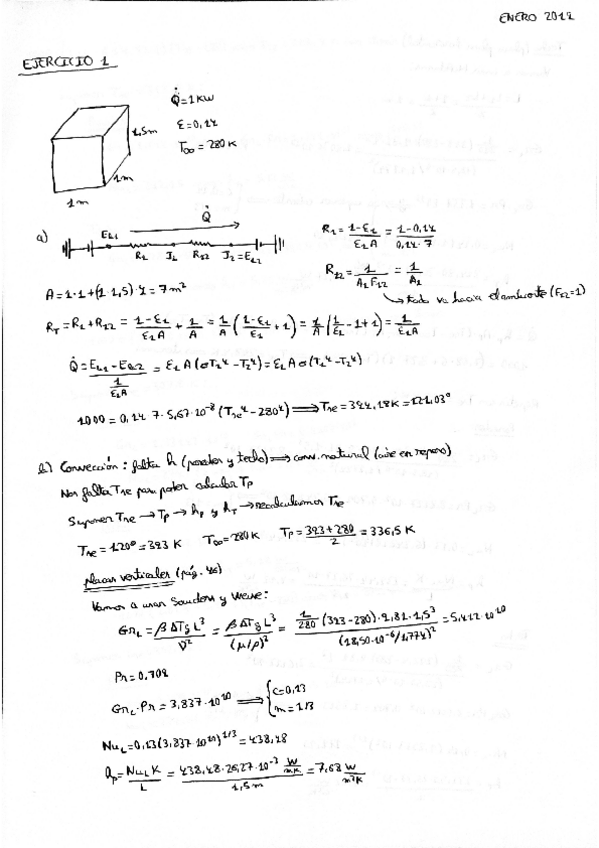 ENERO 2012
EJERCICIO 1
Q̇=1KW
ε=0,14
T∞=280K
1,5m
1m
1m
a)
Q̇
Eb1 R1 J1 R12 J2=Eb2
R1=(1-ε1)/(ε1A)=(1-0,14)/(0,14·7)
R12=1/(A1F12)=1/A1
→ todo va hacia el ambiente (F12=1)
A=1·1+(1·1,5)·4=7m²
RT=R1+R12=(1-ε1)/(ε1A)+1/A=1/A((1-ε1)/ε1+1)=1/A(1/ε1-1+1)=1/(ε1A)
Q̇=(Eb1-Eb2)/(1/(ε1A))=ε1A(σT1⁴-T2⁴)=ε1Aσ(T1⁴-T2⁴)
1000=0,14·7·5,67·10⁻⁸(Tse⁴-280⁴)⟹Tse=394,18K=121,03°
b) Convección: falta h (paredes y techo)⟹conv. natural (aire en reposo)
Nos falta Tse para poder calcular Tp
Suponer Tse→Tp→hp y hT→recalculamos Tse
Tse=120°=393 K T∞=280K Tp=(393+280)/2=336,5 K
placas verticales (pág. 46)
Vamos a usar Saunders y Weise:
GrL=βΔTgL³/ν²=βΔTgL³/(μ/ρ)²=(1/280(393-280)·9,81·1,5³)/(18,50·10⁻⁶/1,774)²=5,412·10¹⁰
Pr=0,702
GrL·Pr=3,837·10¹⁰⟹{C=0,13
m=1/3
NuL=0,13(3,837·10¹⁰)^1/3=438,48
hp=NuL K/L=(438,48·26,27·10⁻³ W/mK)/1,5m=7,68 W/m²K